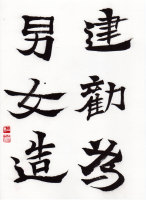 建勸為
男女造